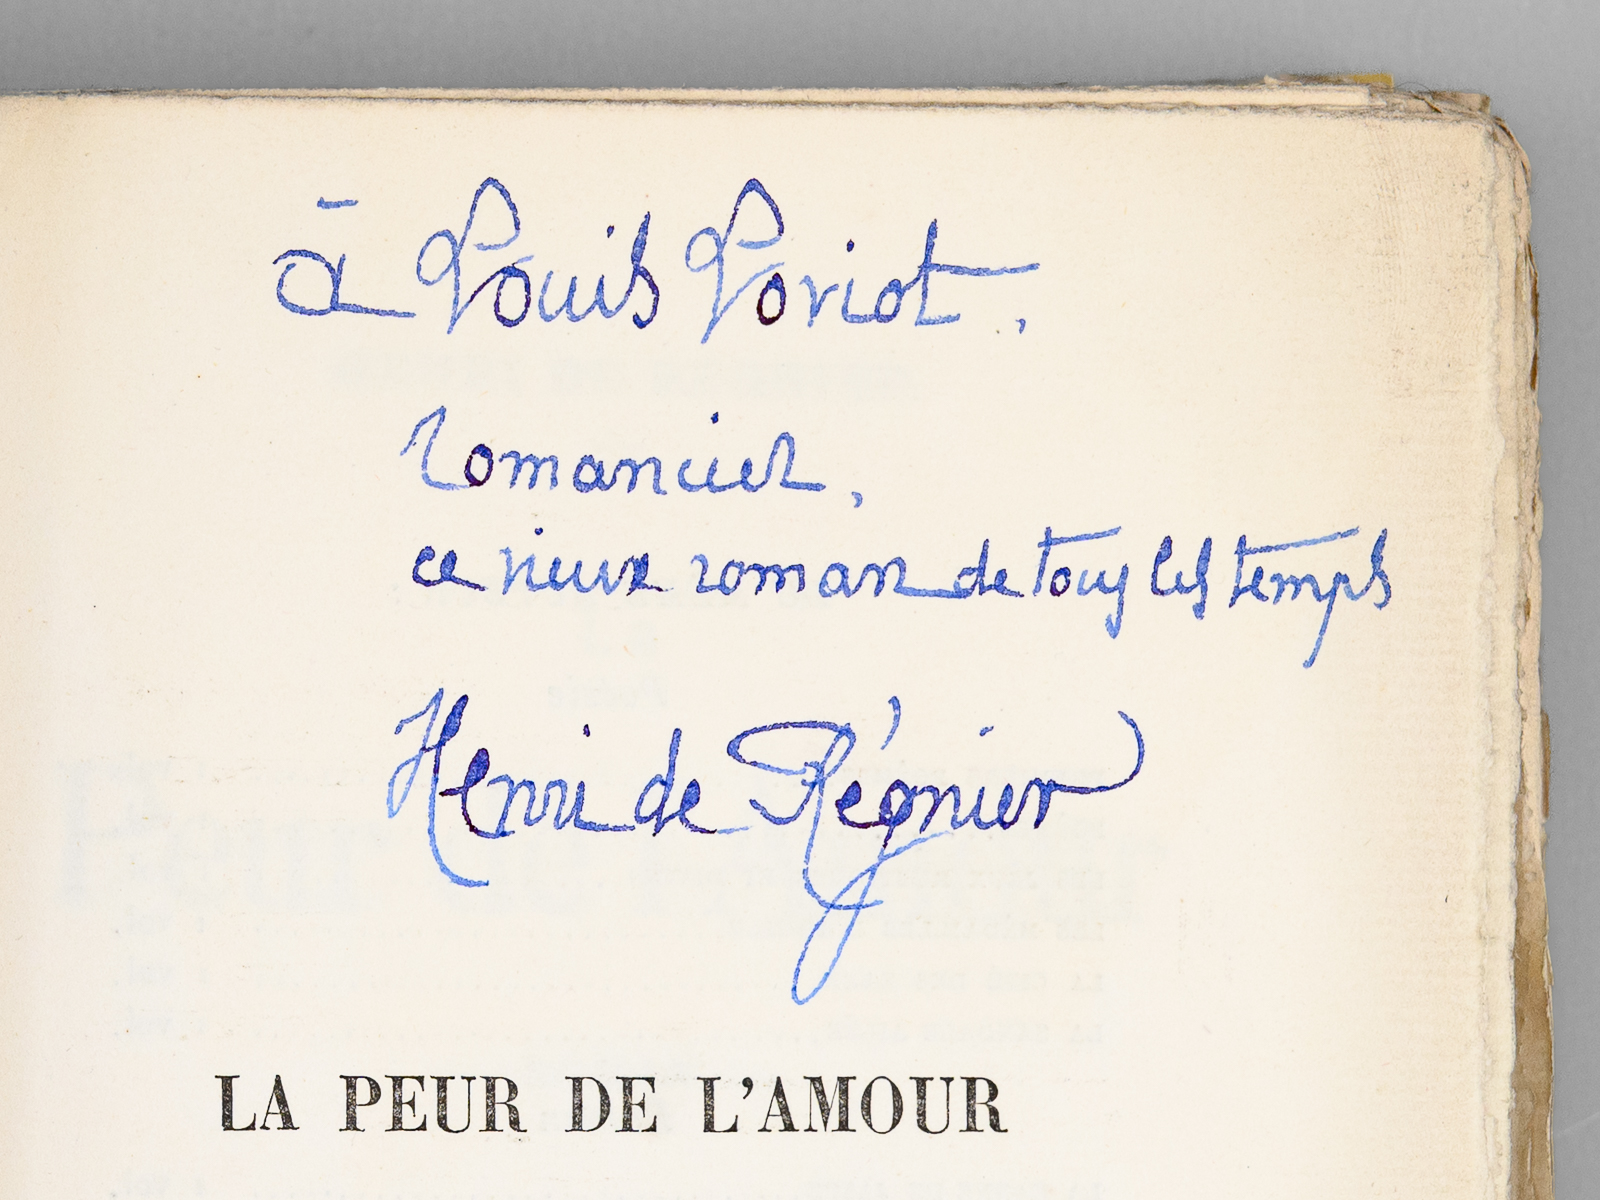 à Louis Loriot,
romancier,
ce vieux roman de tous les temps
Henri de Régnier
LA PEUR DE L'AMOUR